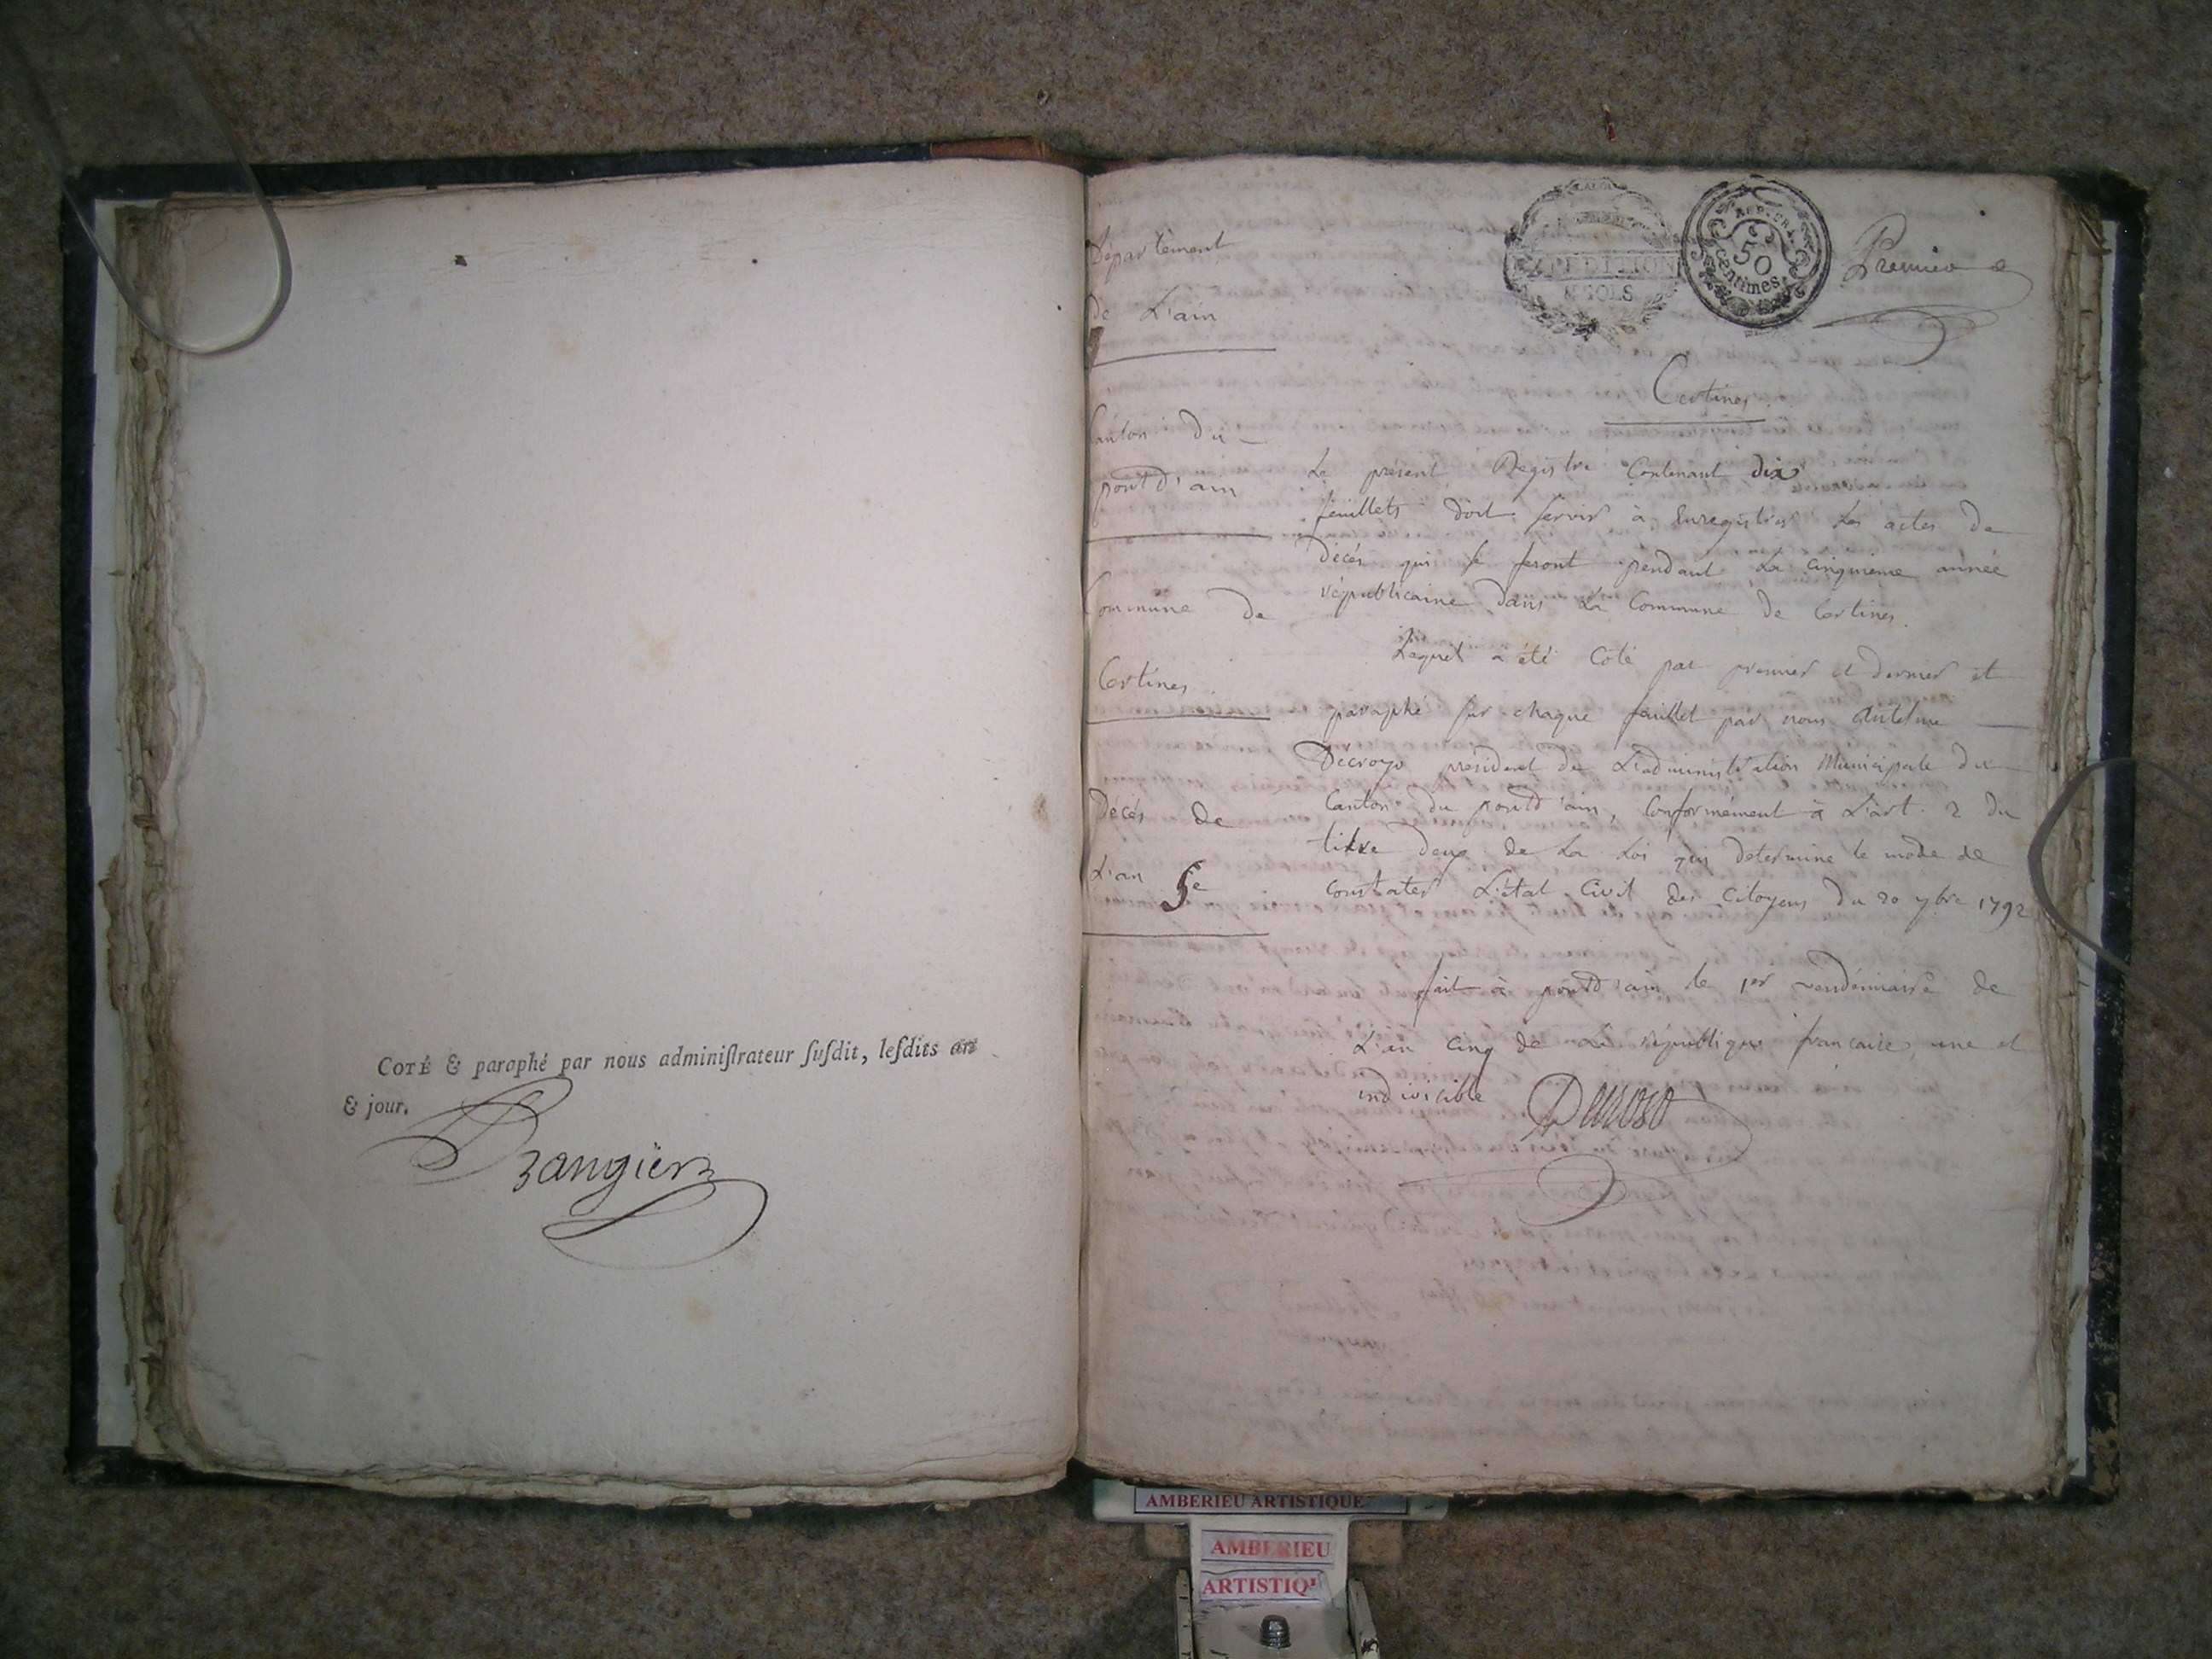 COTÉ & paraphé par nous administrateur susdit, lesdits an
& jour.
Département
de L'ain
Canton du
pont d'ain
Commune de
Certines
Décés de
L'an 5e
EXPEDITION
SOLS
REP. FRA.
50
centimes
Premier
Certines.
Le présent Registre Contenant dix
feuillets doit servir à Enregistrer Les actes de
décés qui se feront pendant La cinquieme année
républicaine dans La Commune de Certines.
Lequel a été Coté par premier et dernier et
paraphé sur chaque feuillet par nous Antelme
Décrozo président de L'administration Municipale du
Canton du pont d'ain, Conformément à L'art. 2 du
titre deux de La Loi qui determine le mode de
constater L'état Civil des Citoyens du 20 7bre 1792
fait à pont d'ain le 1er vendémiaire de
L'an cinq de La république francaise, une et
indivisible
AMBERIEU ARTISTIQUE
AMBERIEU
ARTISTIQ